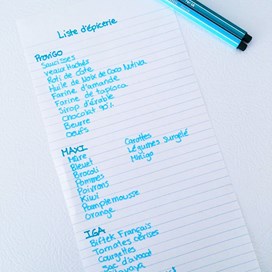 Liste d'épicerie
PROVIGO
Saucisses
Veaux haché
Roti de côte
Huile de Noix de Coco Nutiva
Farine d'amande
Farine de tapioca
Sirop d'érable
Chocolat 90%
Beurre
Oeufs
MAXI
Mûre
Bleuet
Brocoli
Pommes
Poivrons
Kiwi
Pamplemousse
Orange
Carottes
Légumes Surgelé
Mango
IGA
Biftek Français
Tomates Cerises
Courgettes
Sac d'avocat